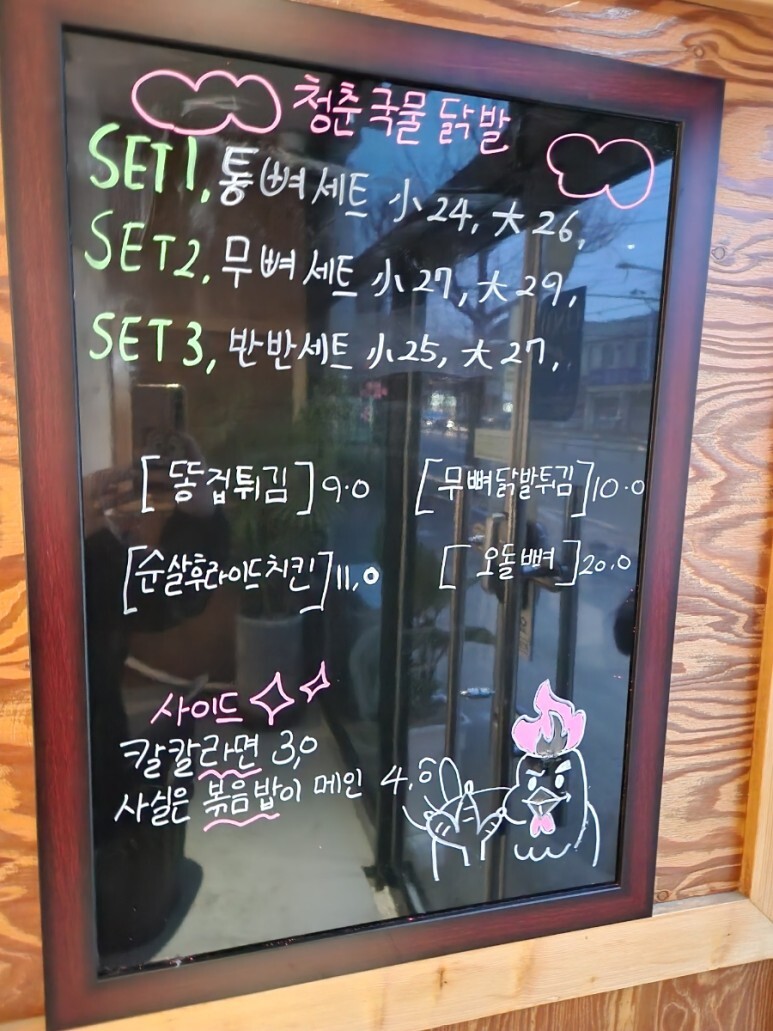 청춘 국물 닭발
SET1, 통뼈세트 小24, 大26,
SET2, 무뼈세트 小27, 大29,
SET3, 반반세트 小25, 大27,
[똥집튀김]9.0 [무뼈닭발튀김]10.0
[순살후라이드치킨]11,0 [오돌뼈]20.0
사이드
칼칼라면 3,0
사실은 볶음밥이 메인 4.0